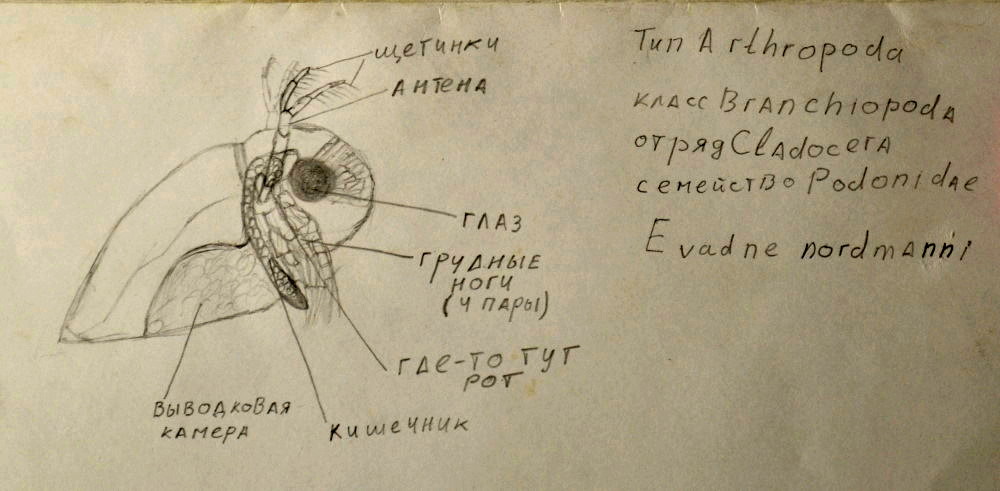 щетинки
антена
Тип Arthropoda
класс Branchiopoda
отряд Cladocera
семейство Podonidae
Evadne nordmanni
глаз
грудные
ноги
(4 пары)
где-то тут
рот
выводковая
камера
кишечник